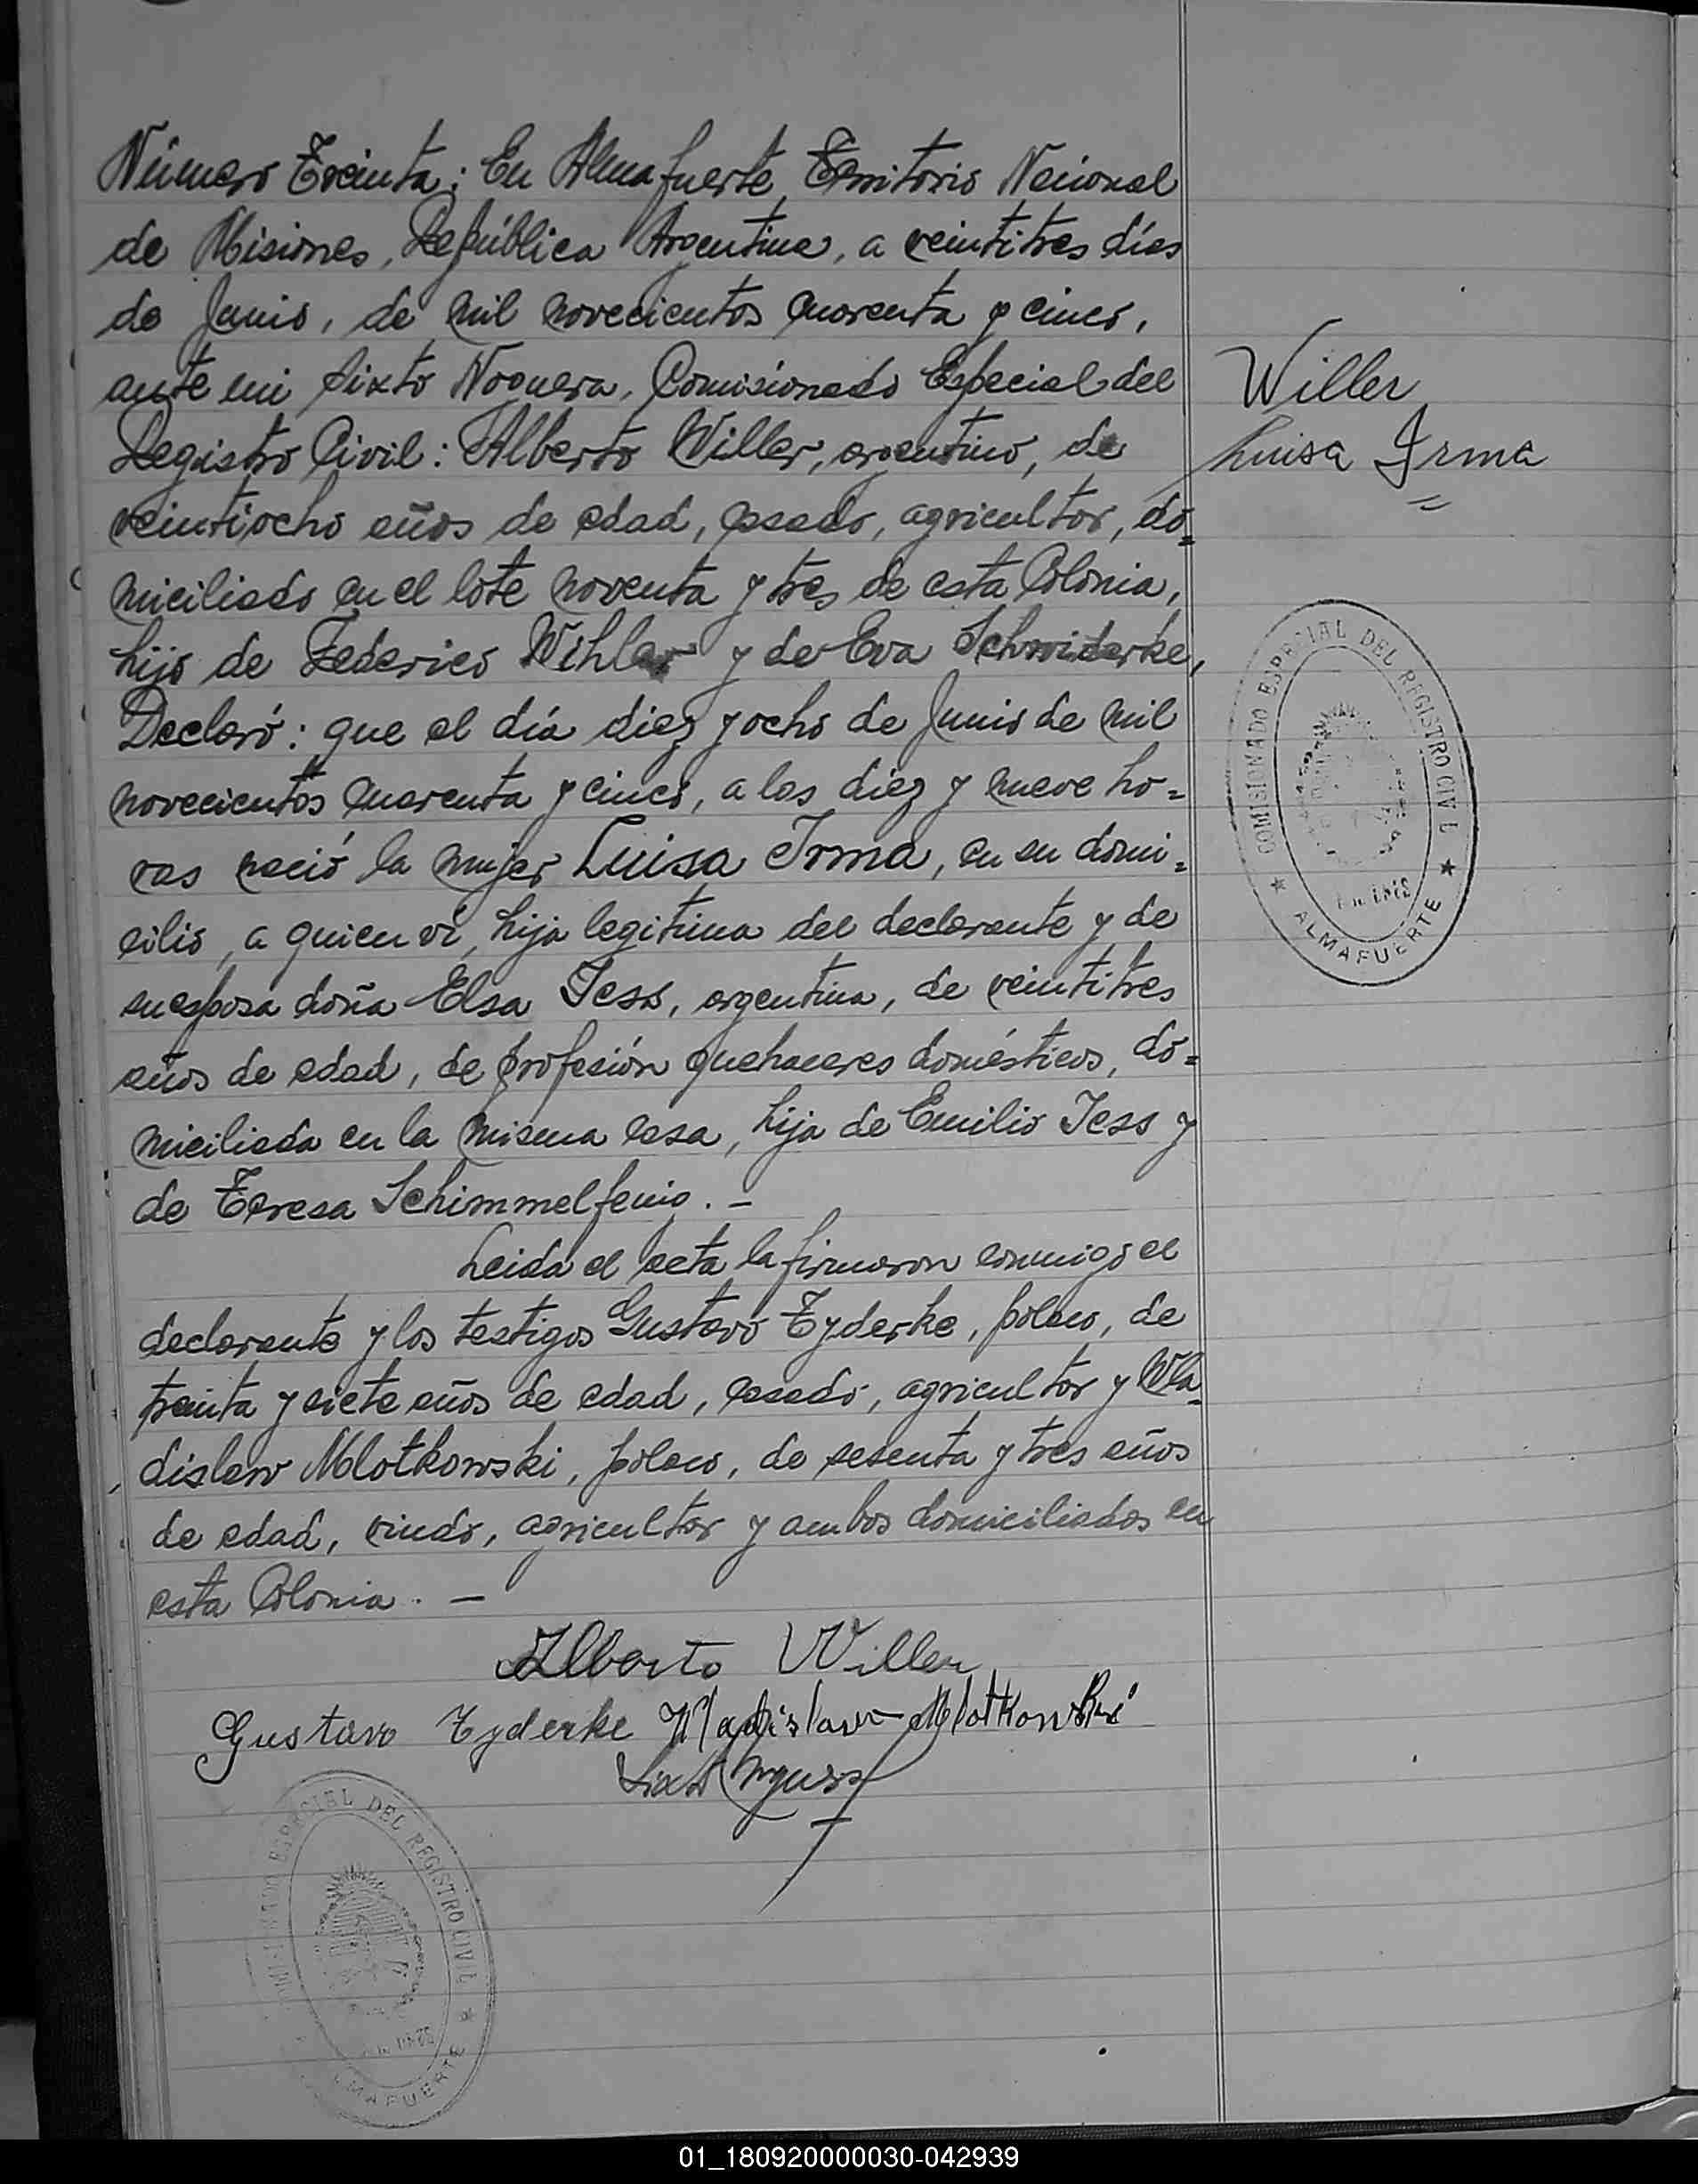 Número Treinta: En Almafuerte Territorio Nacional
de Misiones, República Argentina, a veintitres días
de Junio, de mil novecientos cuarenta y cinco,
ante mi Sixto Noguera, Comisionado Especial del
Registro Civil: Alberto Willer, argentino, de
veintiocho años de edad, casado, agricultor, do=
miciliado en el lote noventa y tres de esta Colonia,
hijo de Federico Wihler y de Eva Schmiderke,
Declaró: que el día diez y ocho de Junio de mil
novecientos cuarenta y cinco, a las diez y nueve ho=
ras nació la mujer Luisa Irma, en su domi=
cilio, a quien vi, hija legitima del declarante y de
su esposa doña Elsa Jess, argentina, de veintitres
años de edad, de profesión quehaceres domésticos, do=
miciliada en la misma casa, hija de Emilio Jess y
de Teresa Schimmelfenig. —
Leida el acta la firmaron conmigo el
declarante y los testigos Gustavo Tyderke, polaco, de
treinta y siete años de edad, casado, agricultor y Wla=
dislaw Mlotkowski, polaco, de sesenta y tres años
de edad, viudo, agricultor y ambos domiciliados en
esta Colonia. —
Alberto Willer
Gustavo Tyderke Wladislaw Mlotkowski
Sixto Noguera
Willer
Luisa Irma
COMISIONADO ESPECIAL DEL REGISTRO CIVIL
ALMAFUERTE
ESPECIAL DEL REGISTRO CIVIL
ALMAFUERTE
01_180920000030-042939